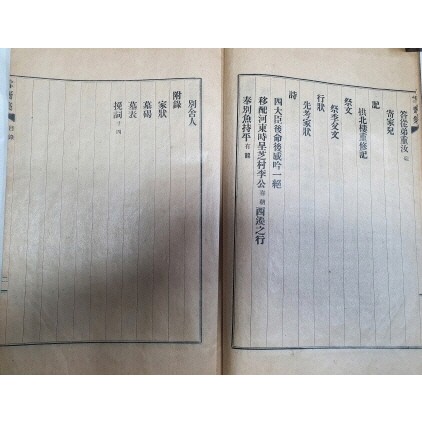 答從弟重汝
寄家兒
記
拱北樓重修記
祭文
祭季父文
行狀
先考家狀
詩
四大臣後命後感吟一絕
移配河東時呈芝村李公 西溪之行
奉別魚持平
別舍人
附錄
家狀
墓碣
墓表
挽詞